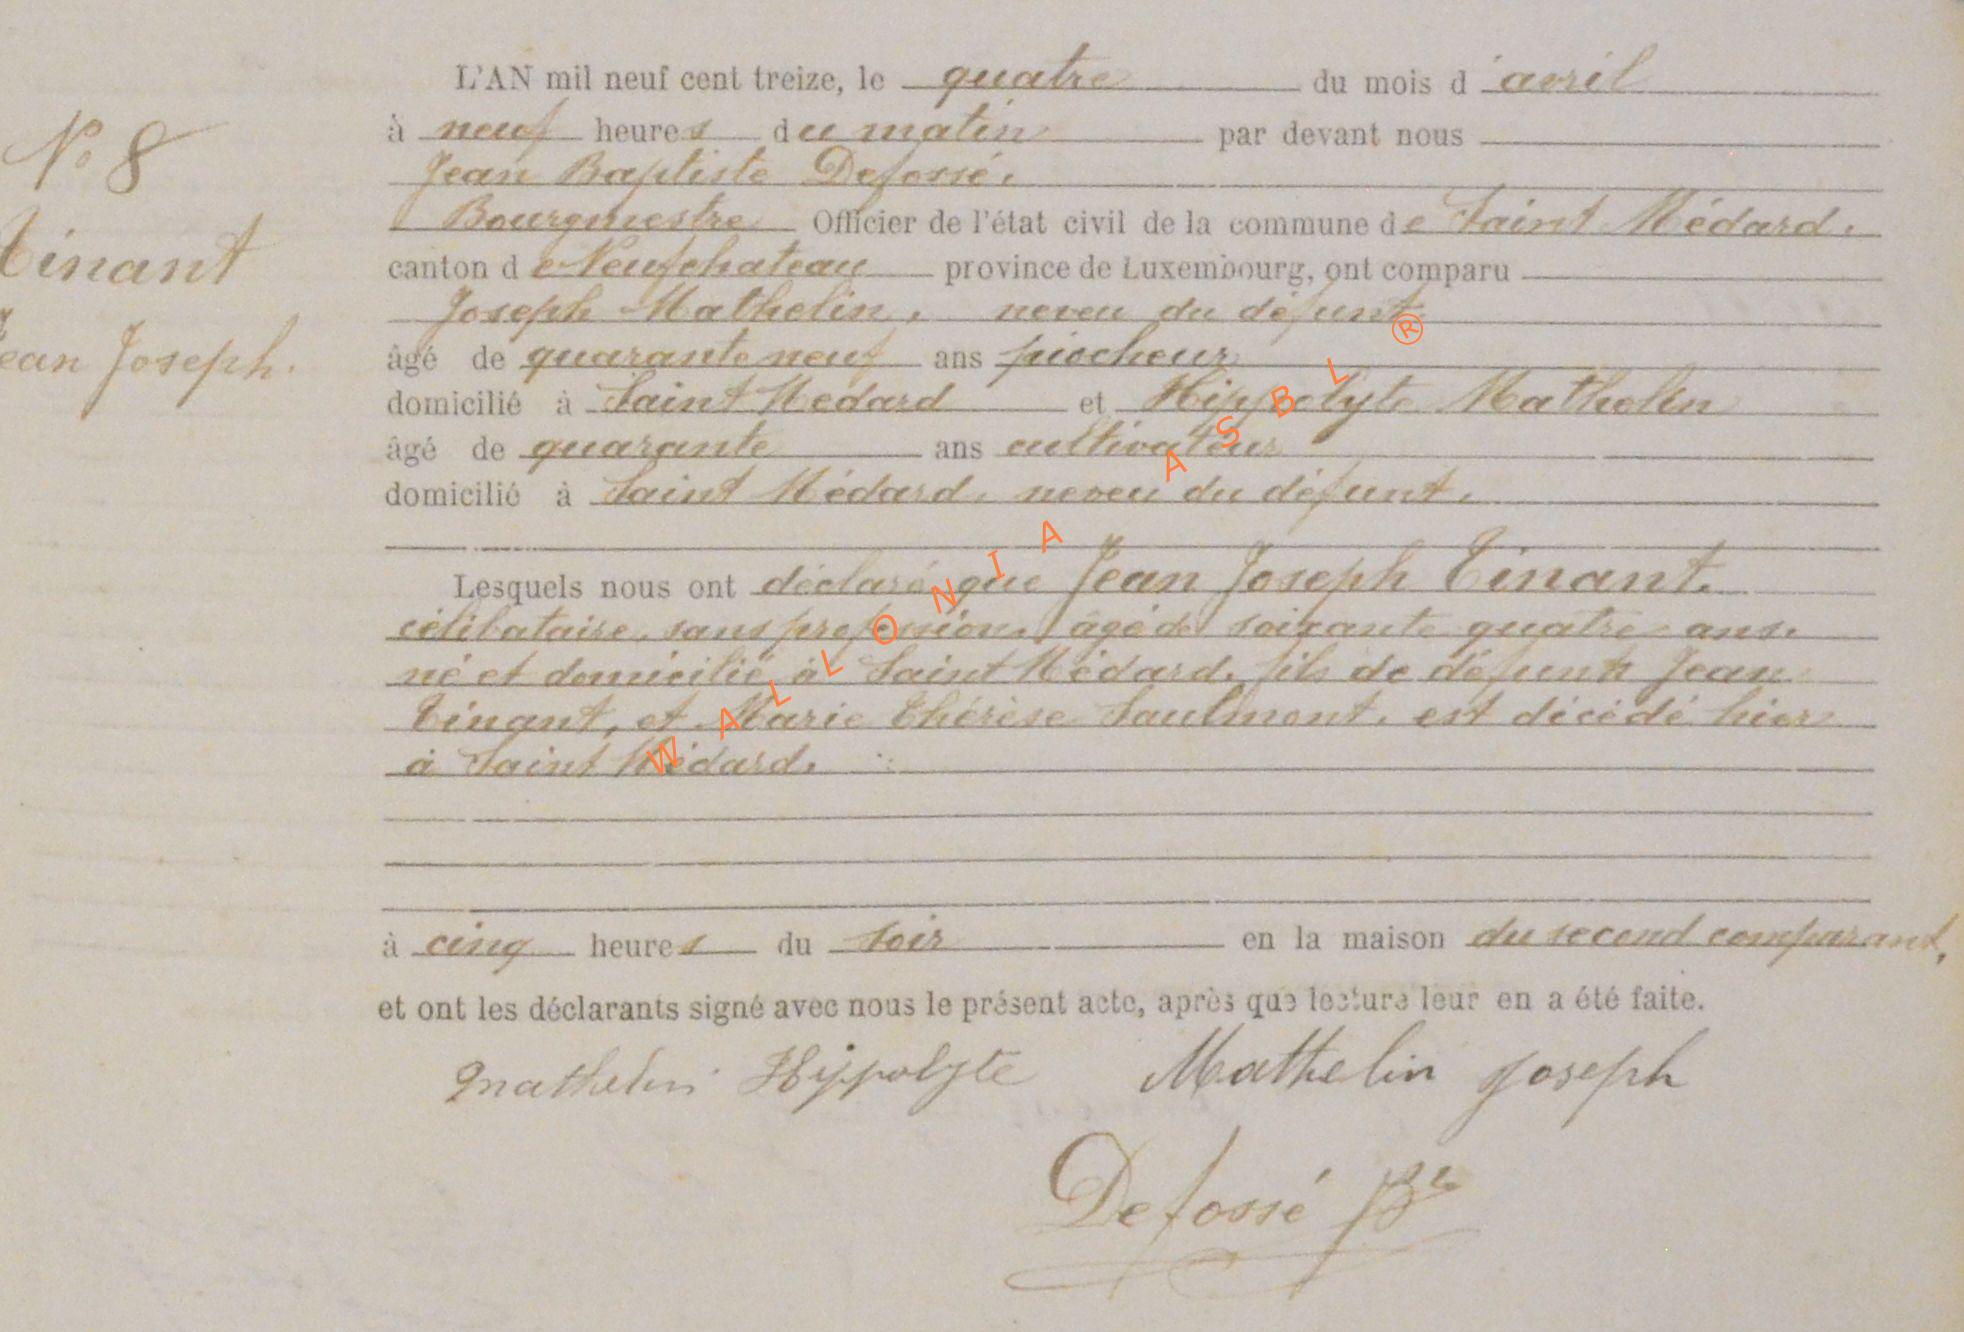 L'AN mil neuf cent treize, le quatre du mois d'avril
à neuf heures du matin par devant nous
N° 8
Jean Baptiste Defossé,
Bourgmestre Officier de l'état civil de la commune de Saint Médard,
Tinant
canton de Neufchateau province de Luxembourg, ont comparu
Joseph Mathelin, neveu du défunt
Jean Joseph.
âgé de quarante neuf ans piocheur
domicilié à Saint Médard et Hippolyte Mathelin
âgé de quarante ans cultivateur
domicilié à Saint Médard, neveu du défunt,
Lesquels nous ont déclaré que Jean Joseph Tinant,
célibataire, sans profession, âgé de soixante quatre ans,
né et domicilié à Saint Médard, fils de défunts Jean
Tinant, et Marie Thérèse Saulmont, est décédé hier
à Saint Médard,
à cinq heures du soir en la maison du second comparant,
et ont les déclarants signé avec nous le présent acte, après que lecture leur en a été faite.
Mathelin Hippolyte Mathelin Joseph
Defossé JBte
WALLONIA ASBL ®